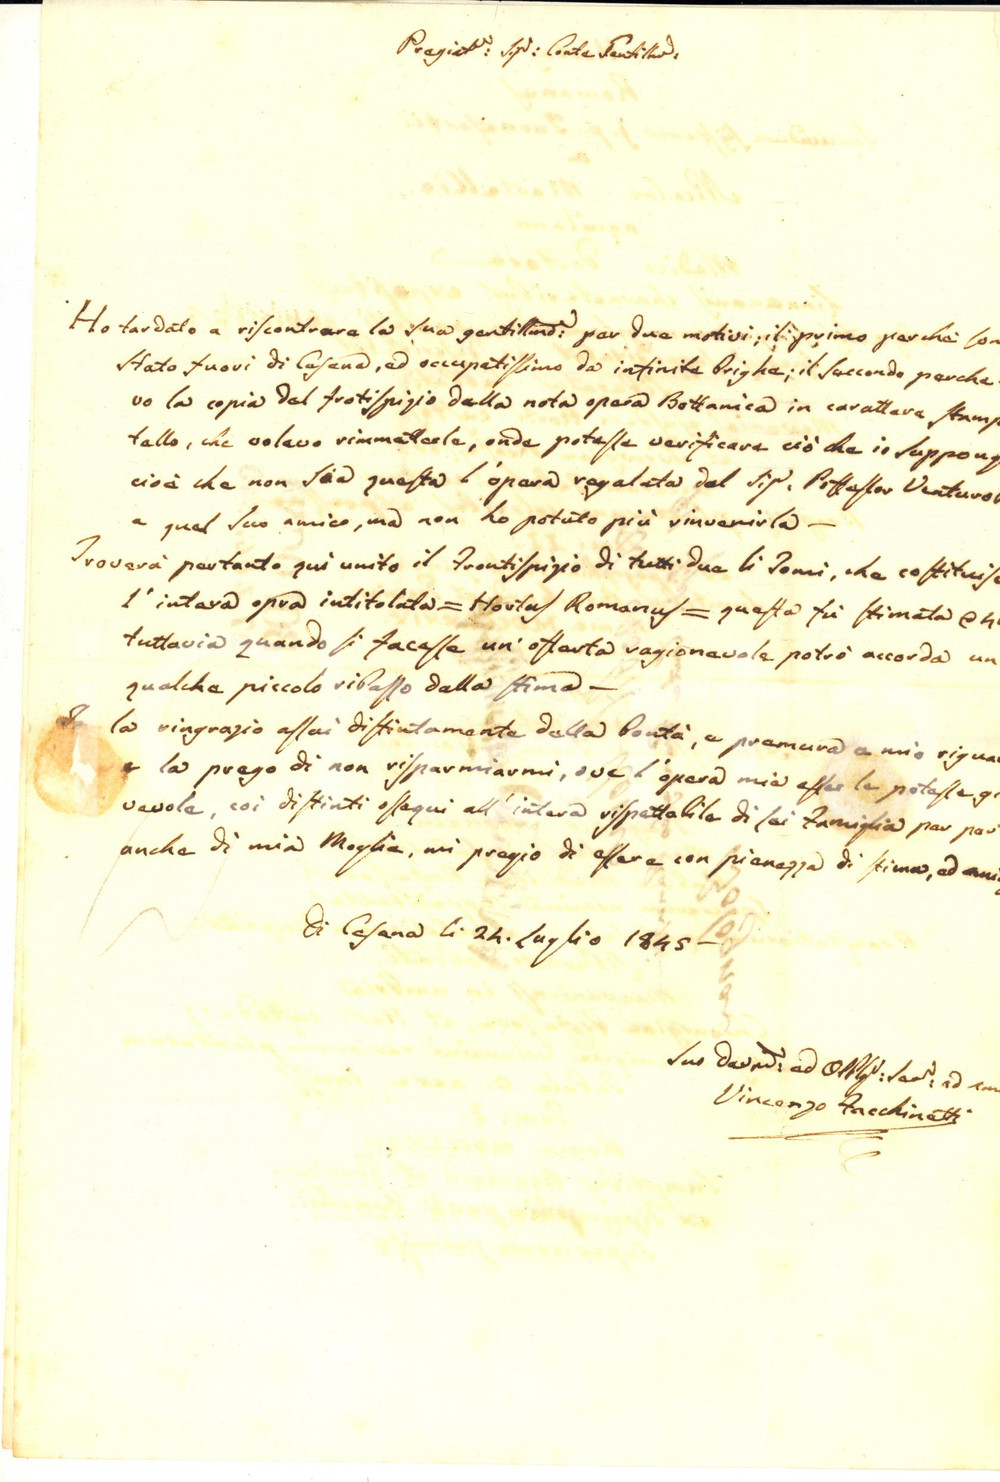 Pregiat.mo Sig.r Conte Gentiliss.mo
Ho tardato a riscontrare la sua gentillma per due motivi; il primo perchè son
stato fuori di Cesena, ed occupatissimo da infinite brighe; il seccondo perche
vo la copia del frotispizio della nota opera Bottanica in carattere stamp
tello, che volevo rimmetterle, onde potesse verificare ciò che io suppong
cioè che non sia questa l'opera regalata dal Sig.r Professor Venturoli
a quel suo amico, ma non ho potuto più rinvenirla —
Troverà pertanto quì unito il Frontispizio di tutti due li Tomi, che costituisc
l'intera opra intitolata = Hortus Romanus = questa fù stimata
tuttavia quando si facesse un'offerta ragionevole potrò accorda un
qualche piccolo ribasso dalla stima —
la ringrazio assai distintamente della bontà, e premura a mio rigua
e la prego di non risparmiarmi, ove l'opera mia esser le potesse g
vevole, coi distinti ossequi all'intera rispettabile di Lei Famiglia per par
anche di mia Moglie, mi pregio di essere con pienezza di stima, ed ami
Di Cesena li 24. Luglio 1845 —
Suo Dev.mo ed Obblg.mo Ser.e ed am
Vincenzo Facchinetti